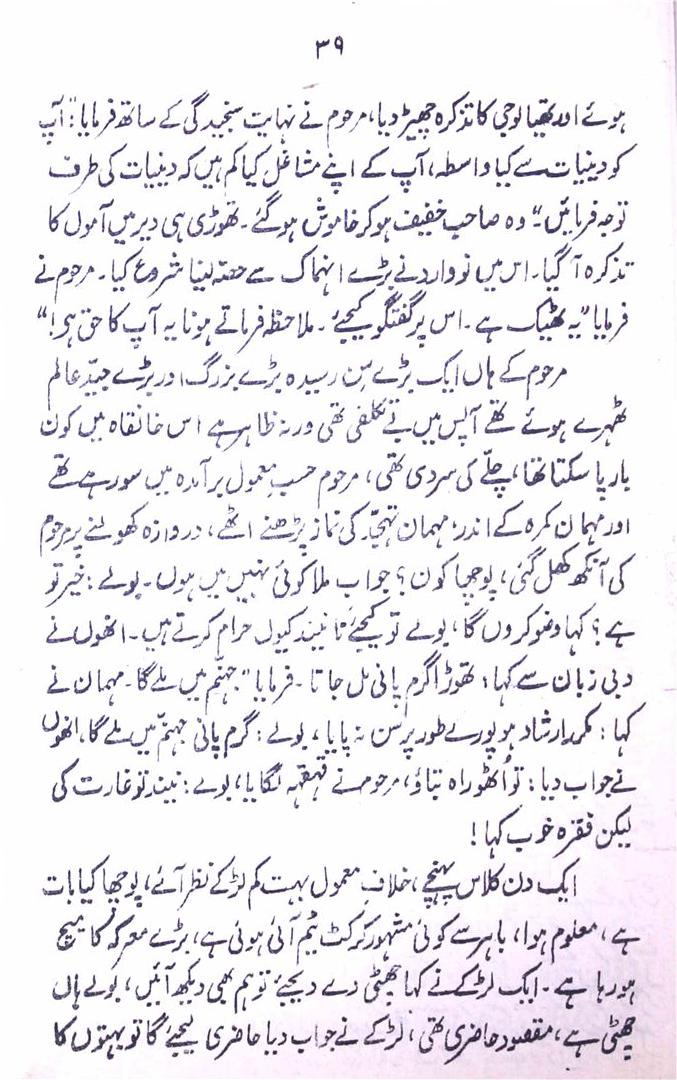 ۳۹
ہوئے اور تھیالوجی کا تذکرہ چھیڑ دیا، مرحوم نے نہایت سنجیدگی کے ساتھ فرمایا: "آپ
کو دینیات سے کیا واسطہ، آپ کے اپنے مشاغل کیا کم ہیں کہ دینیات کی طرف
توجہ فرمائیں۔" وہ صاحب خفیف ہو کر خاموش ہو گئے۔ تھوڑی ہی دیر میں آموں کا
تذکرہ آ گیا۔ اس میں نووارد نے بڑے انہماک سے حصہ لینا شروع کیا۔ مرحوم نے
فرمایا "یہ ٹھیک ہے۔ اس پر گفتگو کیجئے۔ ملاحظہ فرماتے ہونا یہ آپ کا حق ہی!"
مرحوم کے ہاں ایک بڑے سِن رسیدہ بڑے بزرگ اور بڑے جیّد عالم
ٹھہرے ہوئے تھے آپس میں بے تکلفی تھی ورنہ ظاہر ہے اس خانقاہ میں کون
بار پا سکتا تھا، چلّے کی سردی تھی، مرحوم حسبِ معمول برآمدہ میں سو رہے تھے
اور مہمان کمرہ کے اندر، مہمان تہجّد کی نماز پڑھنے اٹھے، دروازہ کھولنے پر مرحوم
کی آنکھ کھل گئی، پوچھا کون؟ جواب ملا کوئی نہیں میں ہوں۔ بولے: خیر تو
ہے؟ کہا وضو کروں گا، بولے تو کیجئے نا نیند کیوں حرام کرتے ہیں۔ انھوں نے
دبی زبان سے کہا: تھوڑا گرم پانی مل جاتا۔ فرمایا "جہنّم میں ملے گا۔ مہمان نے
کہا: مکرر ارشاد ہو پورے طور پر سن نہ پایا، بولے: گرم پانی جہنّم میں ملے گا، انھوں
نے جواب دیا: تو اُٹھو راہ بتاؤ، مرحوم نے قہقہہ لگایا، بولے: نیند تو غارت کی
لیکن فقرہ خوب کہا!
ایک دن کلاس پہنچے، خلافِ معمول بہت کم لڑکے نظر آئے، پوچھا کیا بات
ہے، معلوم ہوا، باہر سے کوئی مشہور کرکٹ ٹیم آئی ہوئی ہے، بڑے معرکہ کا میچ
ہو رہا ہے۔ ایک لڑکے نے کہا چھٹی دے دیجئے تو ہم بھی دیکھ آئیں، بولے ہاں
چھٹی ہے، مقصود حاضری تھی، لڑکے نے جواب دیا حاضری لیجئے گا تو بہتوں کا